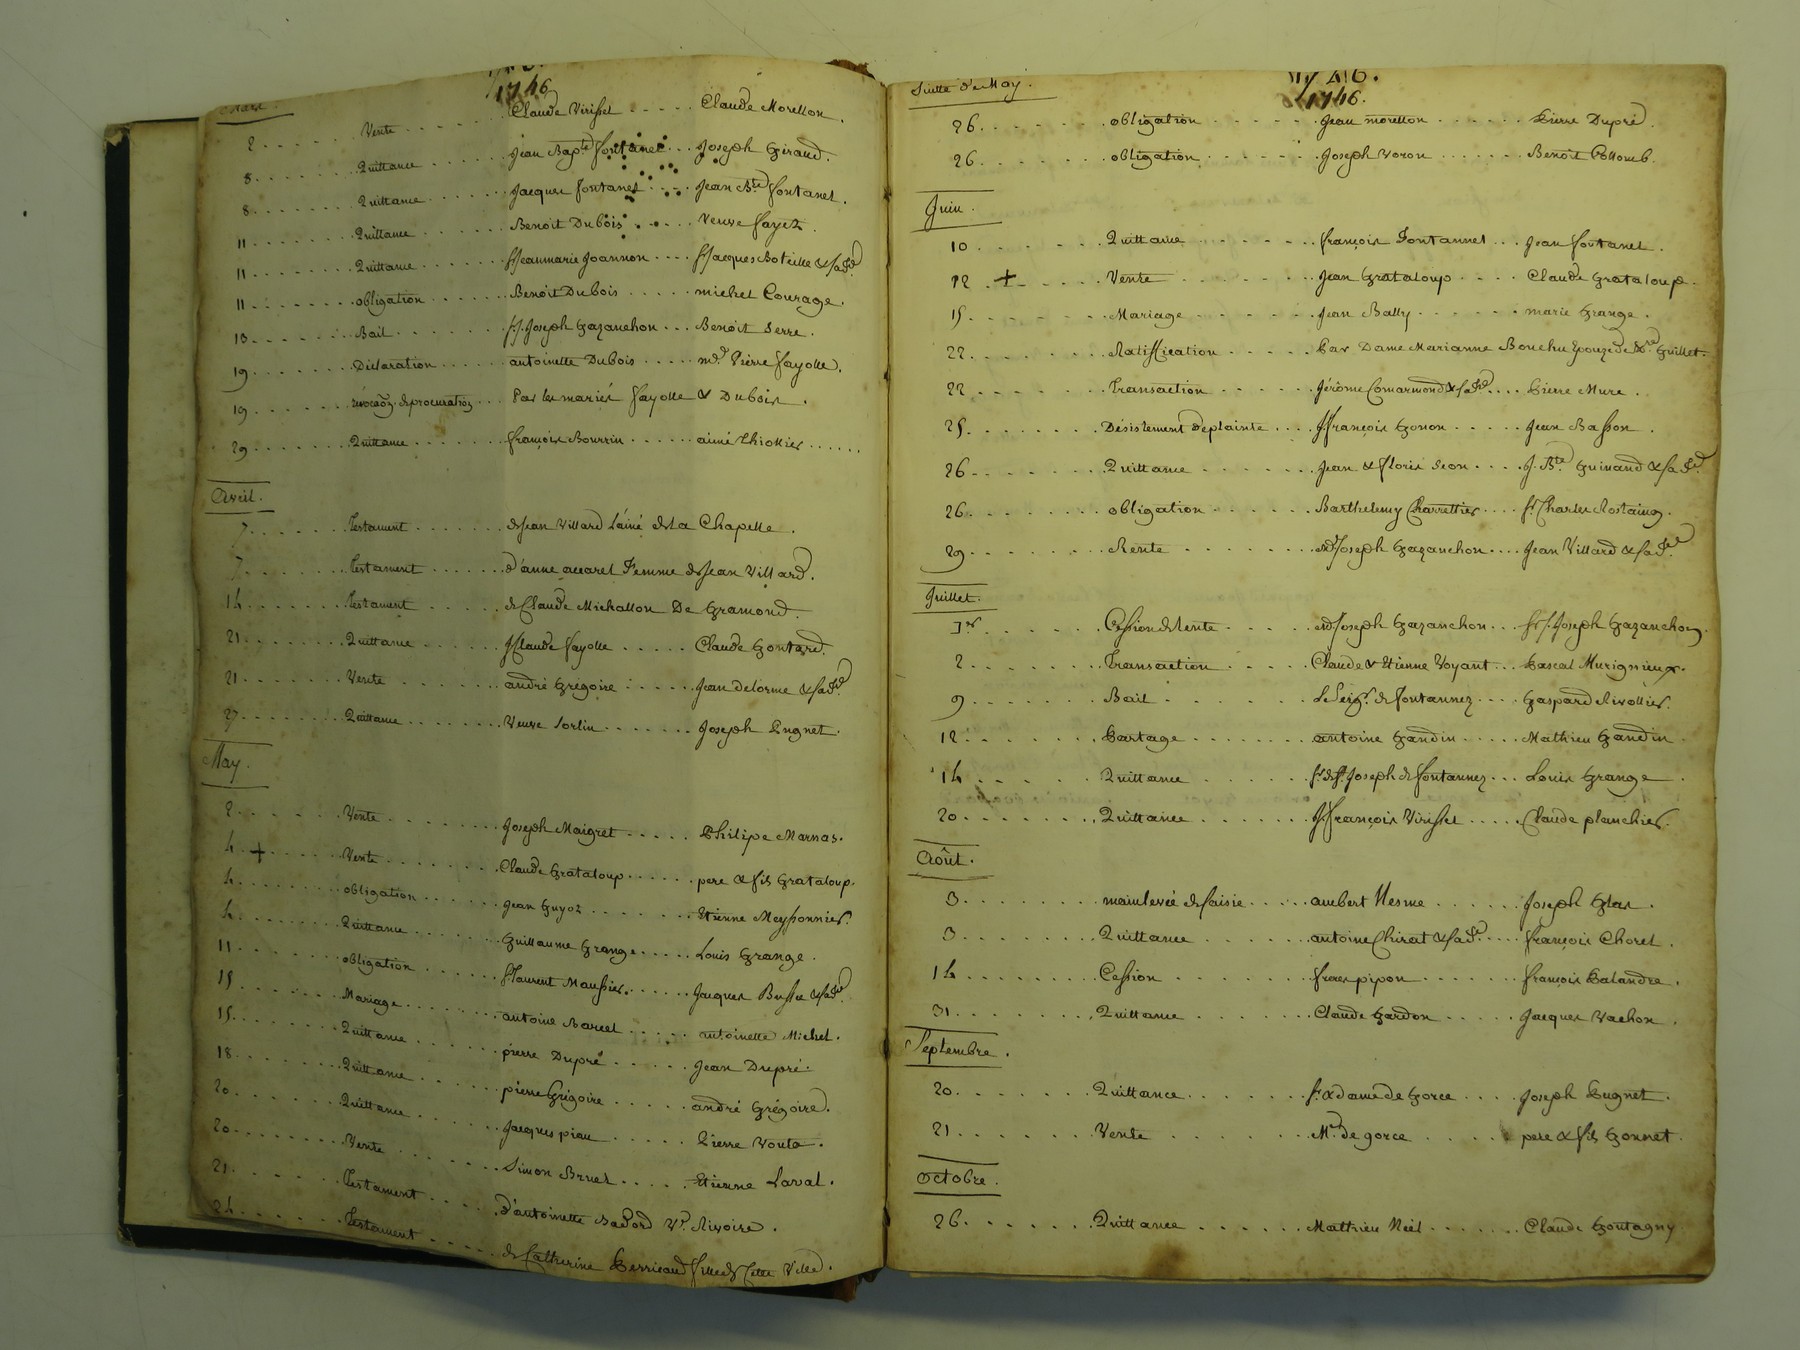 1746
Mars.
2 Vente Claude Virisset Claude Morellon.
8 Quittance Jean Bapte fontanet Joseph Giraud.
8 Quittance Jacques fontanet Jean Bte fontanet.
11 Quittance Benoit Dubois Veuve fayet.
11 Quittance Sr Jeanmarie Joannon Sr Jacques Boteille &
11 obligation Benoit Dubois michel Courage.
13 Bail Joseph Gazanchon Benoit Serre.
19 Déclaration antoinette Dubois Pierre fayolle.
19 de procuration Par les mariés fayolle & Dubois.
29 Quittance françois Bourrin aimé Thiollier
Avril.
7 Testament de Jean Villard L'ainé de La Chapelle.
7 Testament d'anne accarel Femme de Jean Villard.
14 Testament de Claude Michallon De Gramond.
21 Quittance Claude fayolle Claude Gontard.
21 Vente andré Grégoire Jean delorme &
27 Quittance Veuve Sorlin Joseph Pugnet.
May.
2 Vente Joseph Maigret Philipe Marnas.
4 + Vente Claude Grataloup pere & fils Grataloup.
4 obligation Jean Guyot Etienne Meyssonnier.
4 Quittance Guillaume Grange Louis Grange.
11 obligation Sr Laurent Maussier Jacques Busse &
15 Mariage antoine Barcel antoinette Michel.
15 Quittance pierre Dupré Jean Dupré.
18 Quittance pierre Grégoire andré Grégoire.
20 Quittance Jacques piau Pierre Vouta.
20 Vente Simon Brunet Etienne Laval.
21 Testament d'antoinette Badord Ve Rivoire.
24 Testament de Catherine Perricaud fille de Cette Ville.
1746.
1746.
Suitte de May.
26. obligation Jean morellon Pierre Dupré.
26. obligation Joseph Voron Benoit Collomb.
Juin.
10 Quittance françois Fontannet Jean fontanet.
12 + Vente Jean Grataloup Claude Grataloup.
15 Mariage Jean Bally marie Grange.
22 Ratiffication Par Dame Marianne Bouchu Epouze de Guillet.
22 Transaction Jérôme Comarmond & Pierre Mure.
25 Désistement de plainte françois Gonon Jean Basson.
26 Quittance Jean & floris Seon J. Bte Guinand &
26 obligation Barthelemy Charrettier Sr Charles Rostaing.
29 Rente Joseph Gazanchon Jean Villard &
Juillet.
1er Cession de Rente Joseph Gazanchon Joseph Gazanchon.
2 Transaction Claude & Etienne Voyant Pascal Murignieux.
9 Bail Le Seigr de fontannez Gaspard Rivollier.
12 Partage antoine Gandin Mathieu Gandin.
14 Quittance Joseph de fontannez Louis Grange.
20 Quittance françois Virisset Claude planchier.
Août.
3 mainlevée de Saisie aubert Nesme Joseph Glas.
3 Quittance antoine Chirat & françois Chorel.
14 Cession freres pipon françois Palandre.
31 Quittance Claude Gardon Jacques Vachon.
Septembre.
20 Quittance Sr & dame de Gorce Joseph Pugnet.
21 Vente Mr de gorce pere & fils Gonnet.
Octobre.
26 Quittance Mathieu Néel Claude Gontagny